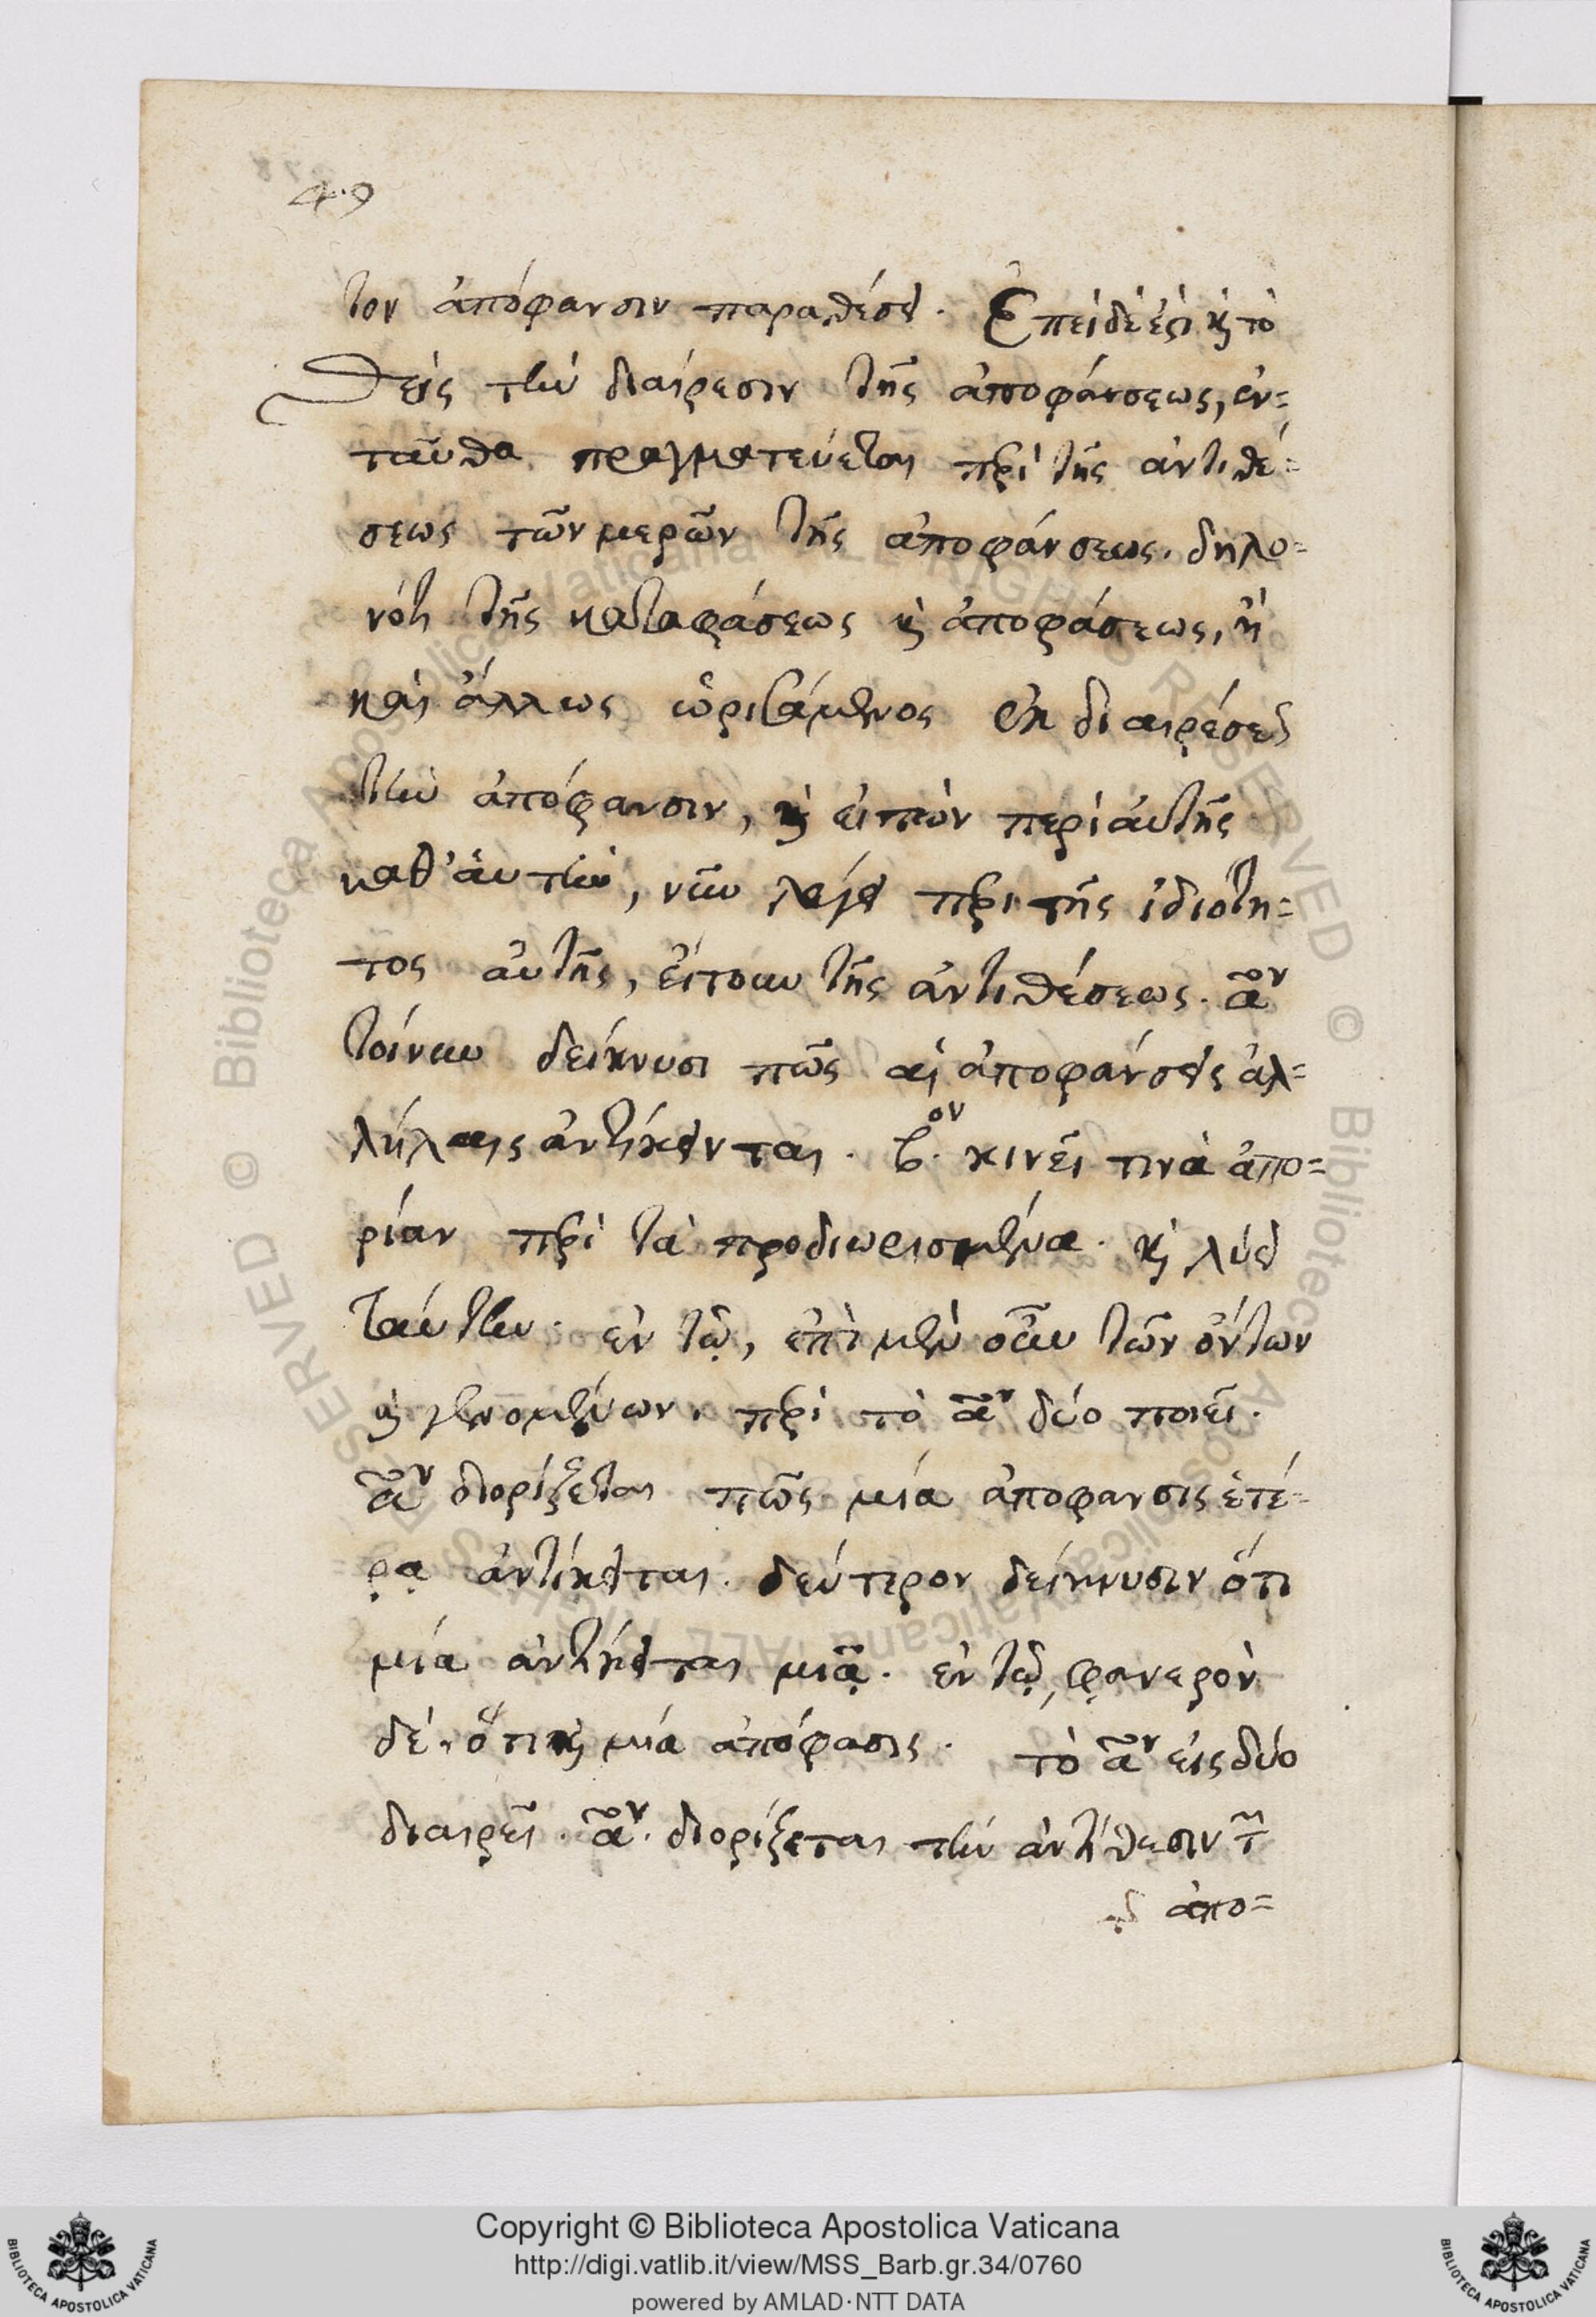 49
τον ἀπόφανσιν παραθέσει. Ἐπειδὲ ἐστὶ κ̀ τὸ
θεὶς τὴν διαίρεσιν τῆς ἀποφάνσεως, ἐν=
ταῦθα πραγματεύεται πρὶ τῆς ἀντιθέ=
σεως τῶν μερῶν τῆς ἀποφάνσεως. δηλο=
νότι τῆς καταφάσεως κ̀ ἀποφάσεως, ἢ
καὶ ἄλλως ὡρισάμενος ἐκ διαιρέσεως
τὴν ἀπόφανσιν, κ̀ εἰπὼν περὶ ἀυτῆς
καθ' ἁυτὴν, νῦν λέγει πρὶ τῆς ἰδιότη=
τος ἀυτῆς, εἴτουν τῆς ἀντιθέσεως. α̃ον
τοίνυν δείκνυσι πῶς αἱ ἀποφάνσεις ἀλ=
λήλαις ἀντίκεινται. β.ον κινεῖ τινὰ ἀπο=
ρίαν πρὶ τὰ προδιωρισμένα. κ̀ λύει
ταύτην. ἐν τῷ, ἐπὶ μὲν οὖν τῶν ὄντων
κ̀ γενομένων. πρὶ τὸ α̃ον δύο ποιεῖ.
α̃ον διορίζεται πῶς μία ἀποφανσις ἑτέ=
ρᾳ ἀντίκειται. δεύτερον δείκνυσιν ὅτι
μία ἀντίκειται μιᾷ. ἐν τῷ, φανερὸν
δέ. ὅτι κ̀ μία ἀπόφασις. τὸ α̃ον εἰς δύο
διαιρεῖ. α̃ον. διορίζεται τὴν ἀντίθεσιν τ͂
ἀπο=
Copyright © Biblioteca Apostolica Vaticana
http://digi.vatlib.it/view/MSS_Barb.gr.34/0760
powered by AMLAD·NTT DATA